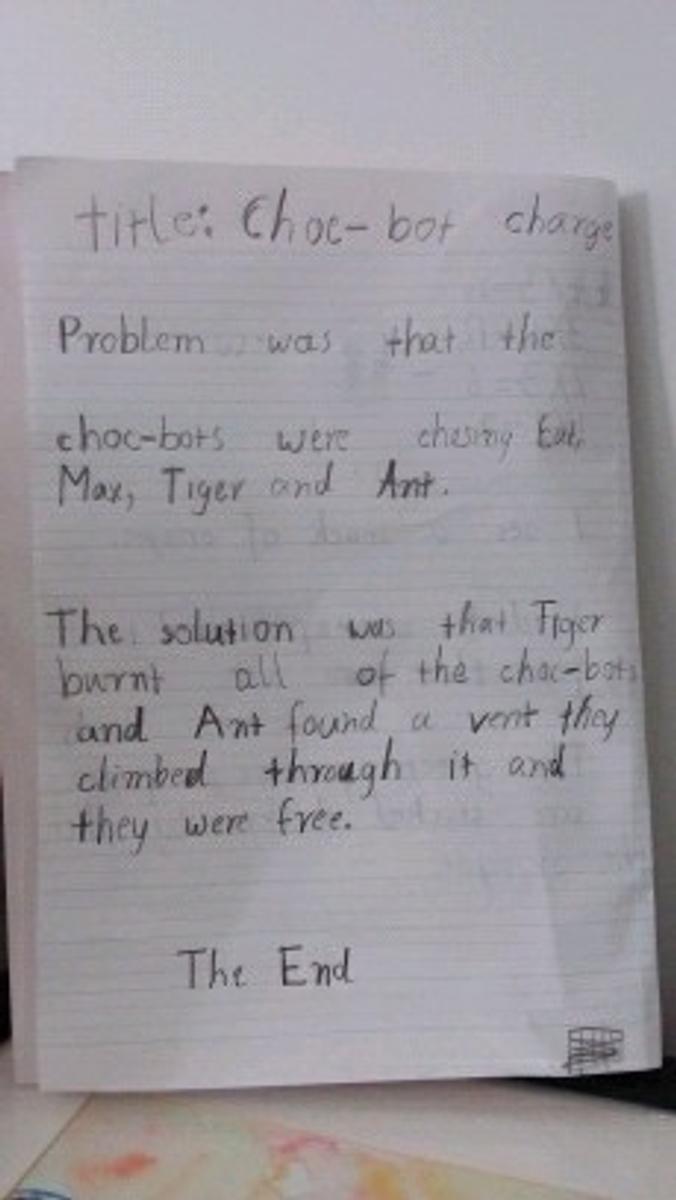 title: Choc-bot charge
Problem was that the
choc-bots were chesing
Max, Tiger and Ant.
The solution was that Tiger
burnt all of the choc-bots
and Ant found a vent they
climbed through it and
they were free.
The End